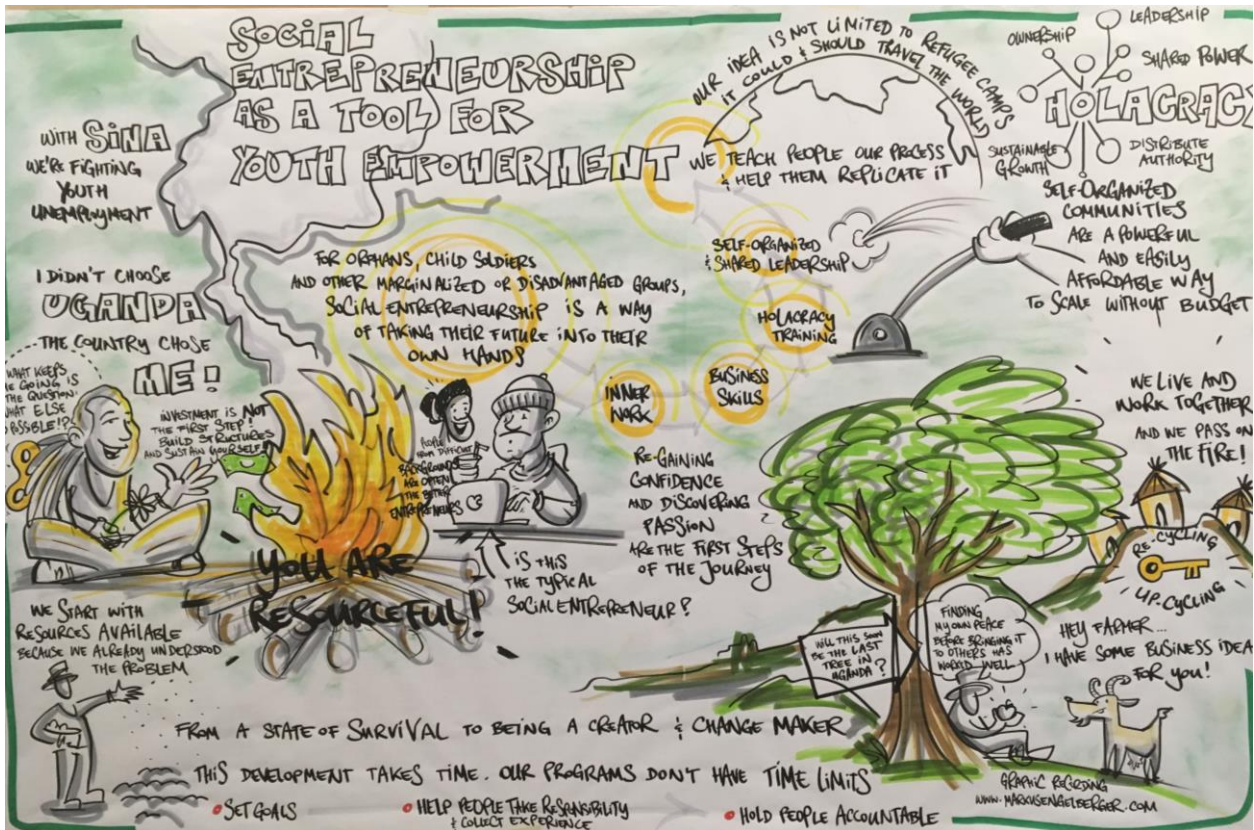 SOCIAL
ENTREPRENEURSHIP
AS A TOOL FOR
YOUTH EMPOWERMENT
WITH SINA
WE'RE FIGHTING
YOUTH
UNEMPLOYMENT
I DIDN'T CHOOSE
UGANDA
THE COUNTRY CHOSE
ME!
WHAT KEEPS
ME GOING IS
THE QUESTION:
WHAT ELSE
POSSIBLE!?
INVESTMENT IS NOT
THE FIRST STEP!
BUILD STRUCTURES
AND SUSTAIN YOURSELF!
FOR ORPHANS, CHILD SOLDIERS
AND OTHER MARGINALIZED OR DISADVANTAGED GROUPS,
SOCIAL ENTREPRENEURSHIP IS A WAY
OF TAKING THEIR FUTURE INTO THEIR
OWN HANDS
PEOPLE
FROM DIFFICULT
BACKGROUNDS
ARE OFTEN
THE BETTER
ENTREPRENEURS
YOU ARE
RESOURCEFUL!
IS THIS
THE TYPICAL
SOCIAL ENTREPRENEUR?
INNER
WORK
BUSINESS
SKILLS
HOLACRACY
TRAINING
SELF-ORGANIZED
& SHARED LEADERSHIP
WE TEACH PEOPLE OUR PROCESS
& HELP THEM REPLICATE IT
OUR IDEA IS NOT LIMITED TO REFUGEE CAMPS
IT COULD & SHOULD TRAVEL THE WORLD
RE-GAINING
CONFIDENCE
AND DISCOVERING
PASSION
ARE THE FIRST STEPS
OF THE JOURNEY
OWNERSHIP
LEADERSHIP
SHARED POWER
HOLACRACY
SUSTAINABLE
GROWTH
DISTRIBUTE
AUTHORITY
SELF-ORGANIZED
COMMUNITIES
ARE A POWERFUL
AND EASILY
AFFORDABLE WAY
TO SCALE WITHOUT BUDGET
WE LIVE AND
WORK TOGETHER
AND WE PASS ON
THE FIRE!
RE-CYCLING
UP-CYCLING
HEY FARMER...
I HAVE SOME BUSINESS IDEA
FOR YOU!
WILL THIS SOON
BE THE LAST
TREE IN
UGANDA?
FINDING
MY OWN PEACE
BEFORE BRINGING IT
TO OTHERS HAS
WORKED WELL
WE START WITH
RESOURCES AVAILABLE
BECAUSE WE ALREADY UNDERSTOOD
THE PROBLEM
FROM A STATE OF SURVIVAL TO BEING A CREATOR & CHANGE MAKER
THIS DEVELOPMENT TAKES TIME. OUR PROGRAMS DON'T HAVE TIME LIMITS
SET GOALS
HELP PEOPLE TAKE RESPONSIBILITY
& COLLECT EXPERIENCE
HOLD PEOPLE ACCOUNTABLE
GRAPHIC RECORDING
WWW.MARKUSENGELBERGER.COM